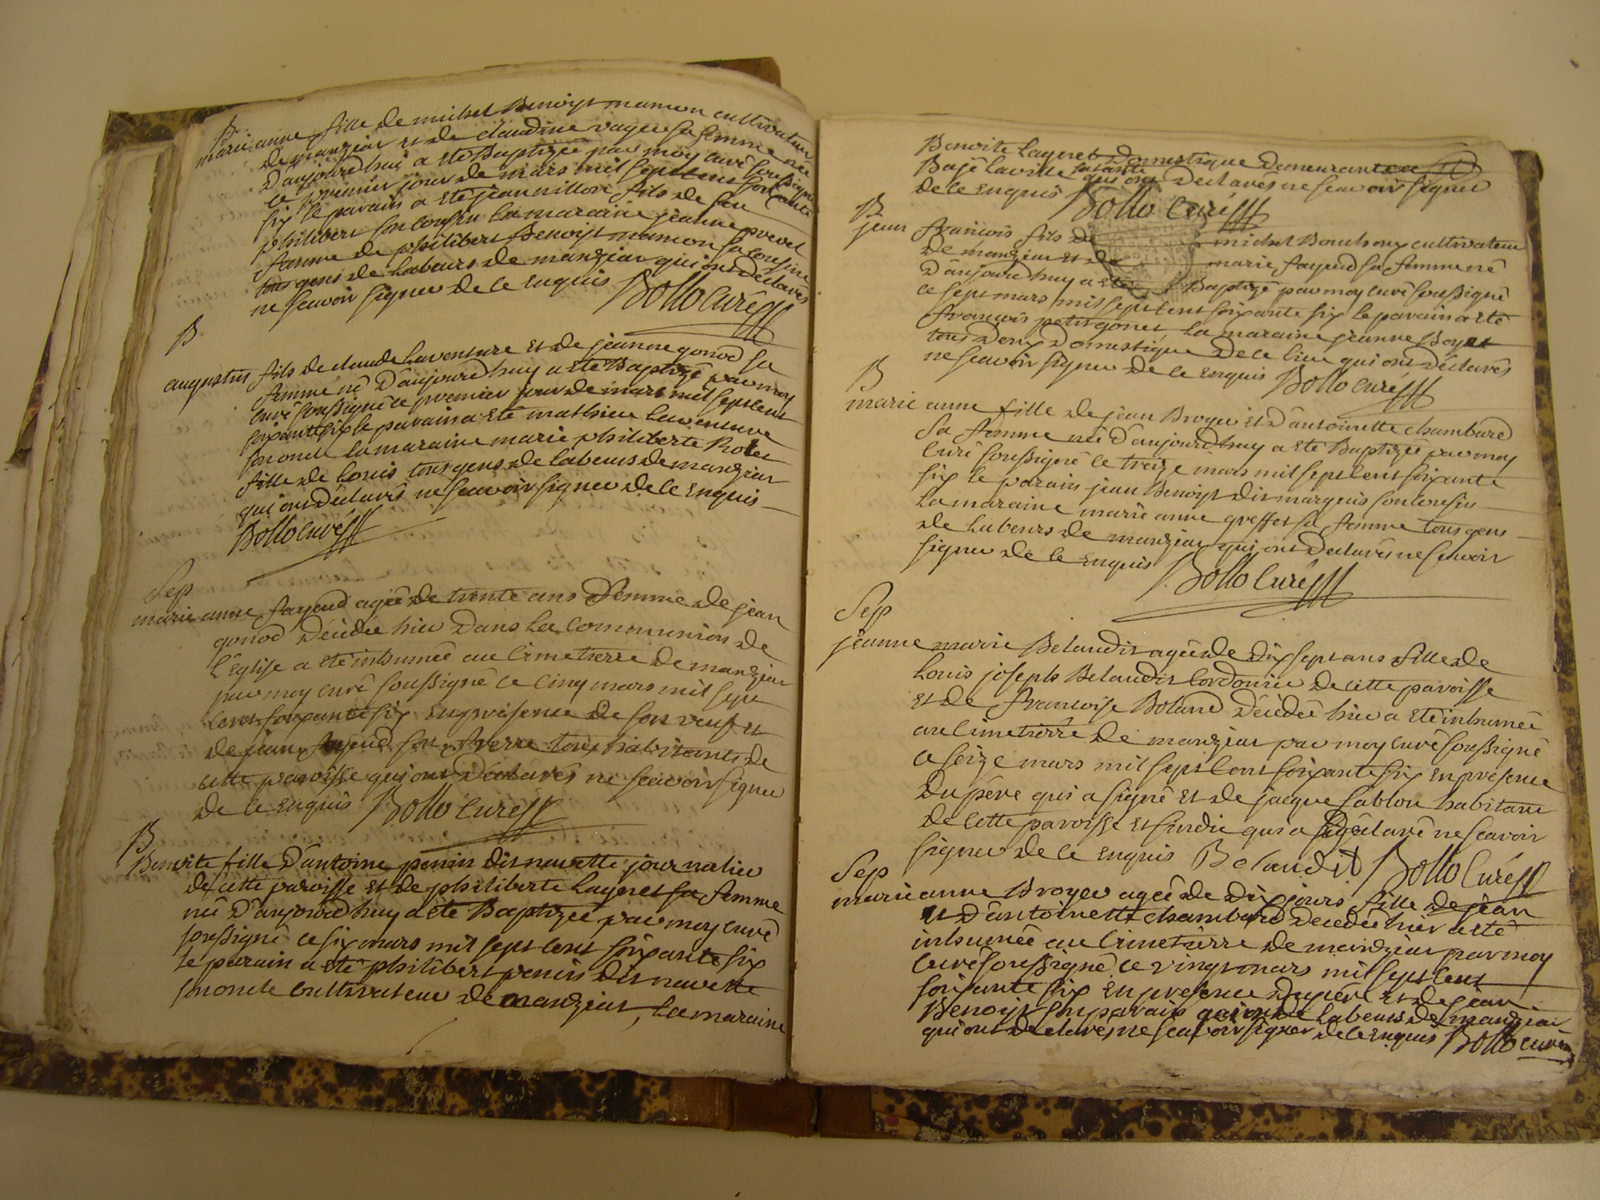 B
marie anne fille de michel Benoist mamon cultivateur
de manziat et de claudine vager sa femme née
d'aujourdhui a eté Baptizée par moy curé soussigné
ce premier jour de mars mil sept cent soixante
six le parain a eté jean fils de feu
philibert son cousin la maraine jeanne
femme de philibert Benoist mamon sa cousine
tous gens de Labeurs de manziat qui ont déclarés
ne scavoir signer de ce Enquis Bollo Curé
B
augustin fils de claude Laventure et de jeanne gonod sa
femme né d'aujourdhuy a eté Baptizé par moy
curé soussigné ce premier jour de mars mil sept cent
soixante six le parain a eté mathieu Laventure
son oncle la maraine marie philiberte
fille de Louis tous gens de Labeurs de manziat
qui ont déclarés ne scavoir signer de ce Enquis
Bollo curé
Sep
marie anne fayend agée de trente ans femme de jean
gonod décédée hier dans La Communion de
L'Eglise a eté inhumée au Cimetierre de manziat
par moy curé soussigné ce cinq mars mil sept
cent soixante six En présence de son veuf et
de jean fayend son frerre tous habitants de
cette paroisse qui ont déclarés ne scavoir signer
de ce Enquis Bollo Curé
B
Benoite fille d'antoine perrin dit navette journalier
de cette paroisse et de philiberte Layeret sa femme
née d'aujourdhuy a eté Baptizée par moy curé
soussigné ce six mars mil sept cent soixante six
le parain a eté philibert perrin dit navette
son oncle cultivateur de manziat, La maraine
Benoite Layeret domestique demeurante a
Bagé La ville sa tante qui ont déclarés ne scavoir signer
de ce Enquis Bollo Curé
B
jean françois fils de michel Bouchoux cultivateur
de manziat et de marie fayend sa femme né
d'aujourdhuy a eté Baptizé par moy curé soussigné
ce sept mars mil sept cent soixante six le parain a eté
françois petit gonet la maraine jeanne Boyat
tous deux domestique de ce lieu qui ont déclarés
ne scavoir signer de ce Enquis Bollo Curé
B
marie anne fille de jean Broyer et d'antoinette chambard
sa femme née d'aujourdhuy a eté Baptizée par moy
curé soussigné ce treize mars mil sept cent soixante
six le parain jean Benoist dit marquis son cousin
La maraine marie anne greffet sa femme tous gens
de Labeurs de manziat qui ont déclarés ne scavoir
signer de ce Enquis Bollo Curé
Sep
jeanne marie Belandit agée de dix sept ans fille de
Louis joseph Belandit Cordonier de cette paroisse
et de françoise Boland décédée hier a eté inhumée
au Cimetierre de manziat par moy curé soussigné
ce seize mars mil sept cent soixante six en présence
du père qui a signé et de jacque Sablon habitant
de cette paroisse et sindic qui a déclaré ne scavoir
signer de ce Enquis Belandit Bollo Curé
Sep
marie anne Broyer agée de dix jours fille de jean
et d'antoinette chambard décédée hier a eté
inhumée au Cimetierre de manziat par moy
curé soussigné ce vingt mars mil sept cent
soixante six En présence du père et de jean
Benoist son parain gens de Labeurs de manziat
qui ont déclarés ne scavoir signer de ce Enquis Bollo curé